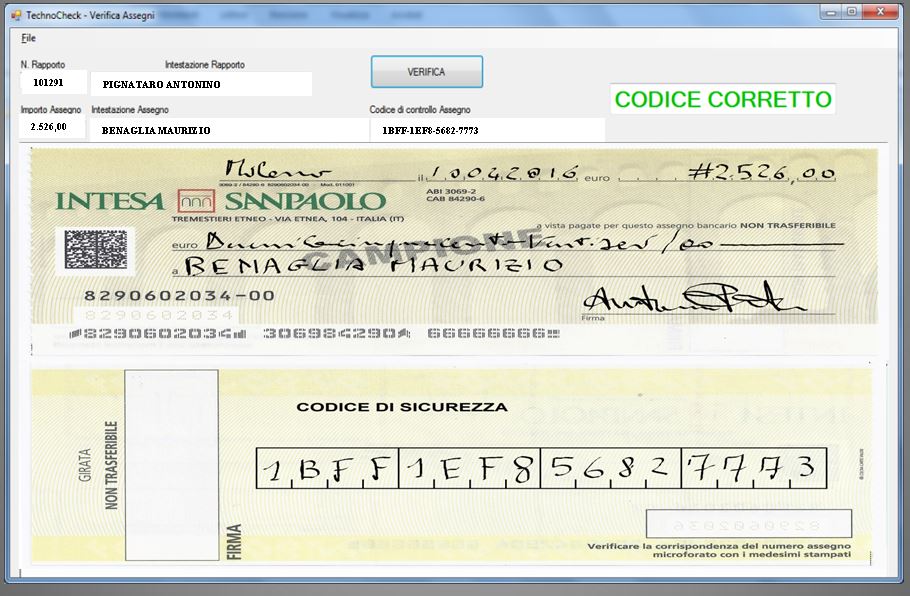 TechnoCheck - Verifica Assegni
File
N. Rapporto Intestazione Rapporto
101291 PIGNATARO ANTONINO
VERIFICA
CODICE CORRETTO
Importo Assegno Intestazione Assegno Codice di controllo Assegno
2.526,00 BENAGLIA MAURIZIO 1BFF-1EF8-5682-7773
Milano il 10042016 euro #2.526,00
3069-2 / 84290-6 8290602034-00 - Mod. 011001
INTESA SANPAOLO
ABI 3069-2
CAB 84290-6
TREMESTIERI ETNEO - VIA ETNEA, 104 - ITALIA (IT)
a vista pagate per questo assegno bancario NON TRASFERIBILE
euro Duemilacinquecento Ventisei/00
CAMPIONE
a BENAGLIA MAURIZIO
8290602034-00
8290602034
Firma
8290602034 3069842906 66666666
CODICE DI SICUREZZA
GIRATA
NON TRASFERIBILE
1BFF 1EF8 5682 7773
FIRMA
8290602036
Verificare la corrispondenza del numero assegno
microforato con i medesimi stampati